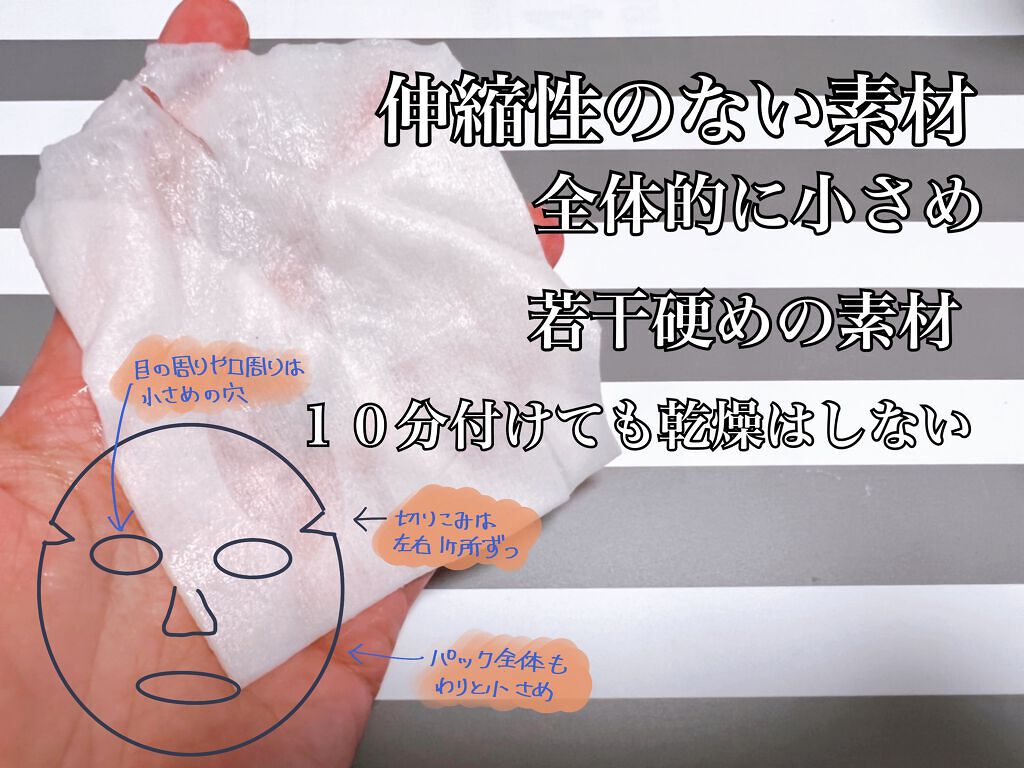 伸縮性のない素材
全体的に小さめ
若干硬めの素材
10分付けても乾燥はしない
目の周りや口周りは
小さめの穴
切りこみは
左右1ケ所ずつ
パック全体も
わりと小さめ